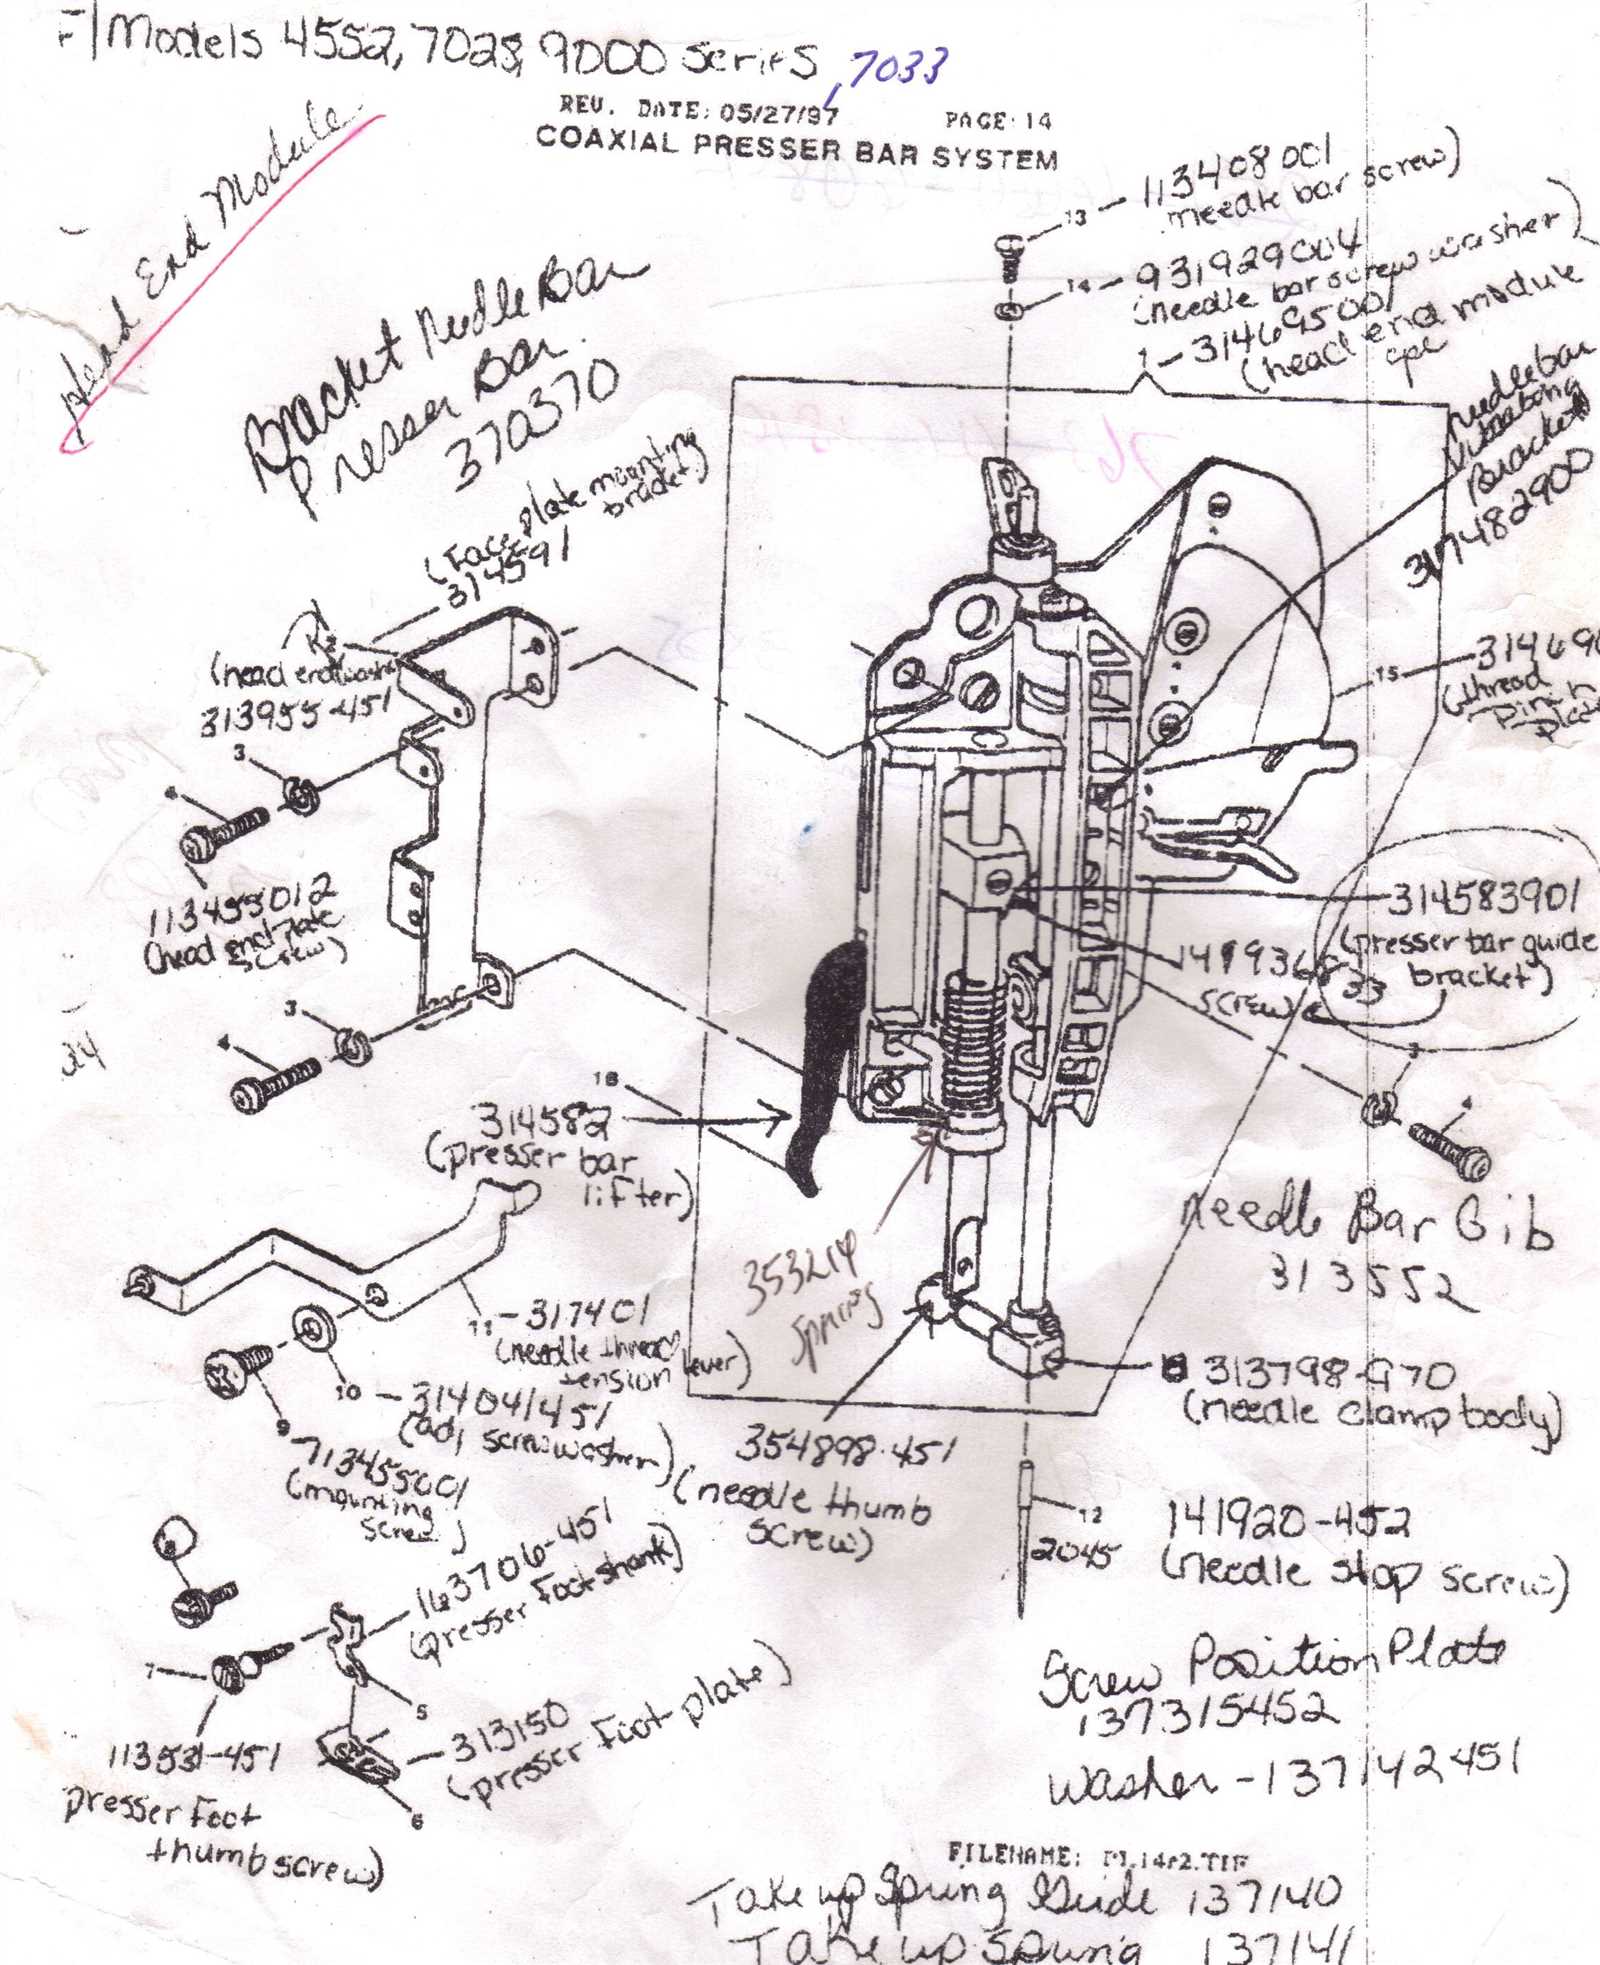 F/Models 4552, 7028, 9000 series, 7033
REV. DATE: 05/27/97 PAGE 14
COAXIAL PRESSER BAR SYSTEM
Head End Module
Bracket Needle Bar
Presser Bar
370370
13 - 113408001
(needle bar screw)
14 - 931929004
(needle bar screw washer)
1 - 314695001
(head end module
cpl
needle bar
Bracket
317482900
(Face plate mounting
bracket)
314591
(head end washer
313955-451
3
4
113455012
(head end plate
screw)
3
4
24
15 - 31469
(thread
pinch
plate
314583901
(presser bar guide
bracket)
1419368
33
screw)
3
4
18
314582
(presser bar
lifter)
353214
spring
Needle Bar Gib
313552
11 - 317401
(needle thread
tension lever)
10 - 314041451
(adj screw washer)
9
713455001
(mounting
screw)
313798-970
(needle clamp body)
354898-451
(needle thumb
screw)
12
2045
141920-452
(needle stop screw)
163706-451
(presser foot shank)
7
5
113531-451
presser foot
thumb screw)
313150
(presser foot plate)
6
Screw Position Plate
137315452
Washer - 137142451
FILENAME:
Take up Spring Guide 137140
Take up Spring 137141